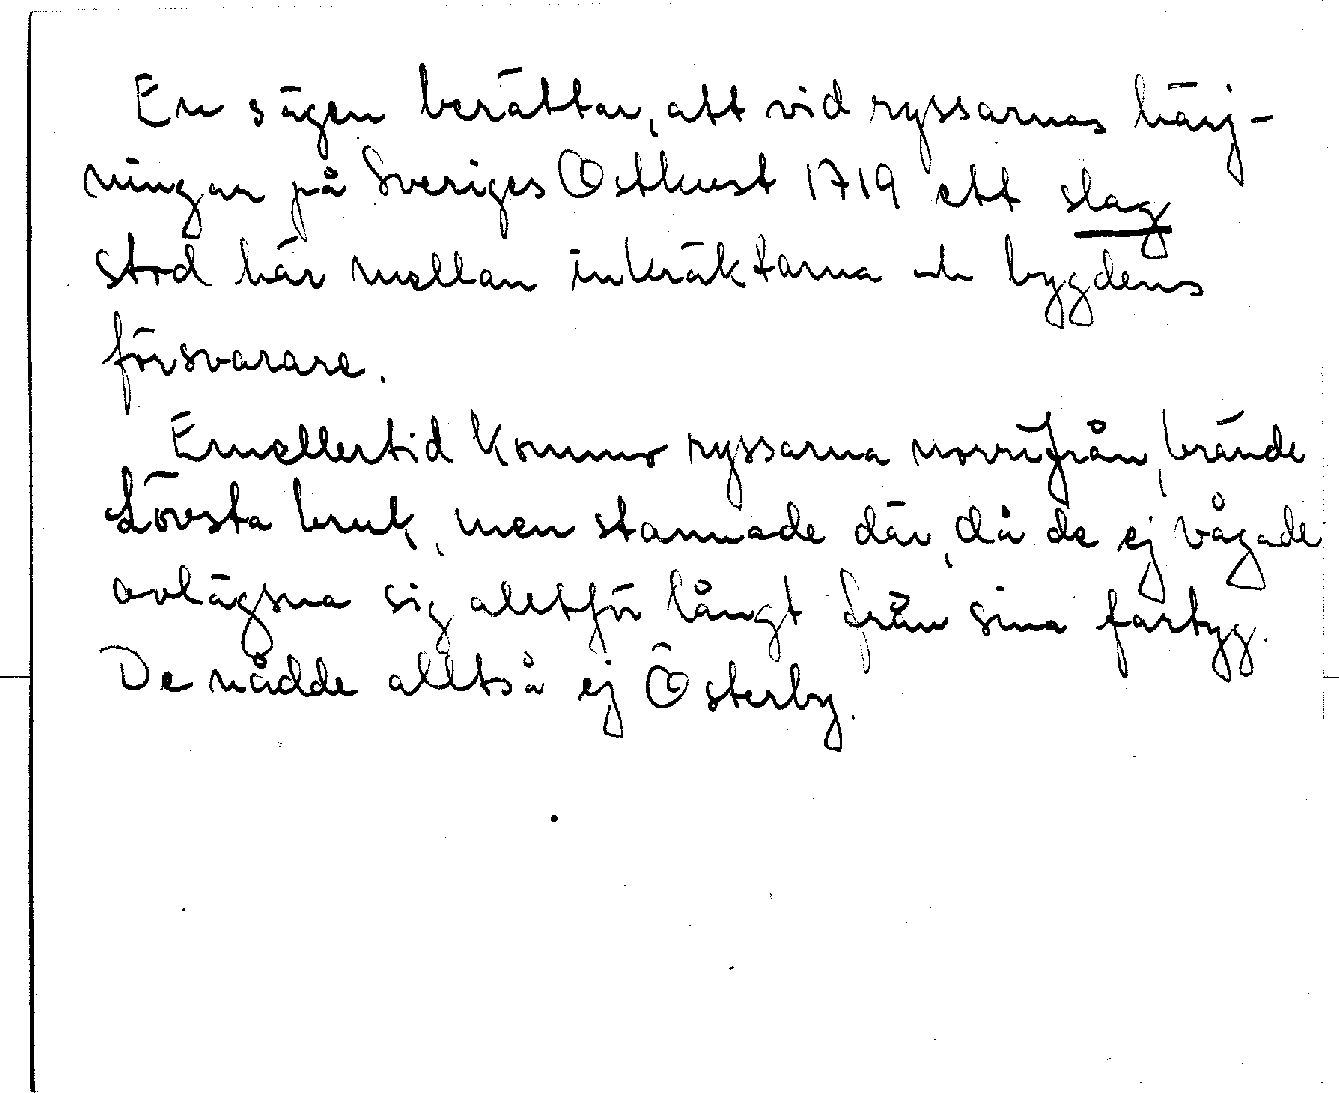 En sägen berättar, att vid ryssarnas härj-
ningar på Sveriges Ostkust 1719 ett slag
stod här mellan inkräktarna och bygdens
försvarare.
Emellertid kommo ryssarna norrifrån, brände
Lövsta bruk, men stannade där, då de ej vågade
avlägsna sig alltför långt från sina fartyg.
De nådde alltså ej Österby.